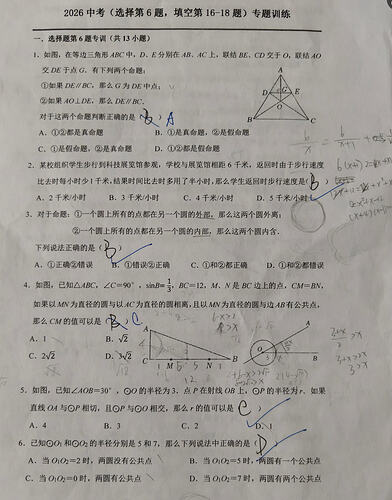 2026 中考（选择第 6 题，填空第 16-18 题）专题训练
一、选择题第 6 题专训（共 13 小题）
1．如图，在等边三角形 ABC 中，D、E 分别在 AB、AC 上，联结 BE、CD 交于 O，联结 AO
交 DE 于点 G．有下列两个命题：
①如果 DE∥BC，那么 G 为 DE 中点；
②如果 AO⊥DE，那么 DE∥BC．
对于这两个命题判断正确的是（ ） A
A．①②都是真命题 B．①是真命题，②是假命题
C．①是假命题，②是真命题 D．①②都是假命题
A
D G E
O
B C
2．某校组织学生步行到科技展览馆参观，学校与展览馆相距 6 千米，返回时由于步行速度
比去时每小时少 1 千米，结果时间比去时多用了半小时，那么学生返回时步行速度是（B）
A．2 千米/小时 B．3 千米/小时 C．4 千米/小时 D．5 千米/小时
3．对于命题：①一个圆上所有的点都在另一个圆的外部，那么这两个圆外离；
②一个圆上所有的点都在另一个圆的内部，那么这两个圆内含．
下列说法正确的是（B）
A．①正确②错误 B．①错误②正确 C．①和②都正确 D．①和②都错误
4．如图，已知△ABC，∠C＝90°，sinB＝1/3，BC＝12，M、N 是 BC 边上的点，CM＝BN，
如果以 MN 为直径的圆与以 AC 为直径的圆相离，且以 MN 为直径的圆与边 AB 有公共点，
那么 CM 的值可以是（ ） C
A．1 B．√2
C．2√2 D．3√2
A
C M N B
A
O B
5．如图，已知∠AOB＝30°，⊙O 的半径为 3，点 P 在射线 OB 上，⊙P 的半径为 r．如果
直线 OA 与⊙P 相切，且⊙P 与⊙O 相交，那么 r 的值可以是（C）
A．4 B．3 C．2 D．1
6．已知⊙O₁和⊙O₂的半径分别是 5 和 7，那么下列说法中正确的是（D）
A．当 O₁O₂＝2 时，两圆没有公共点 B．当 O₁O₂＝5 时，两圆有一个公共点
C．当 O₁O₂＝0 时，两圆有公共点 D．当 O₁O₂＝7 时，两圆有两个公共点